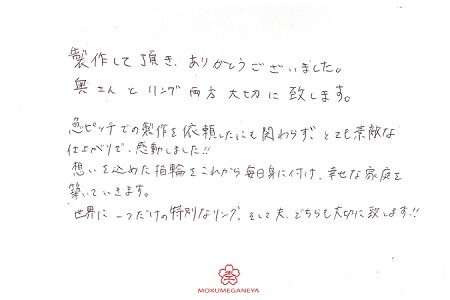 製作して頂き、ありがとうございました。
奥さんとリング両方大切に致します。
急ピッチでの製作を依頼したにも関わらず、とても素敵な
仕上がりで、感動しました!!
想いを込めた指輪をこれから毎日身に付け、幸せな家庭を
築いていきます。
世界に一つだけの特別なリング、そして夫、どちらも大切に致します!!
MOKUMEGANEYA